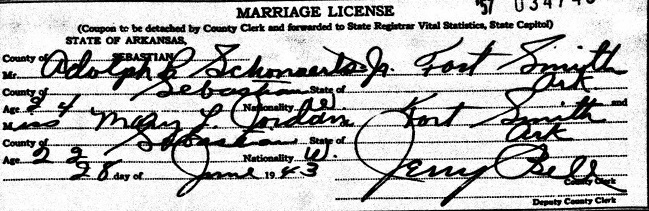 MARRIAGE LICENSE
'57 0347
(Coupon to be detached by County Clerk and forwarded to State Registrar Vital Statistics, State Capitol)
STATE OF ARKANSAS,
County of SEBASTIAN
Mr. Adolph Schonaerts Jr. Fort Smith
County of Sebastian State of Ark
Age 24 Nationality W. and
Miss Mary L. Jordan Fort Smith
County of Sebastian State of Ark
Age 22 Nationality W.
28 day of June 1943 Jerry Bell
County Clerk
Deputy County Clerk